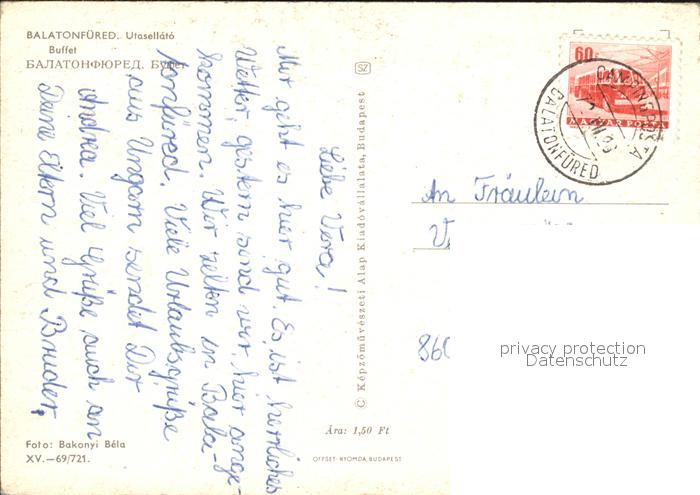 BALATONFÜRED. Utasellátó
Buffet
БАЛАТОНФЮРЕД. Буфет
Liebe Vera!
Mir geht es hier gut. Es ist herrliches
Wetter, gestern sind wir hier ange-
kommen. Wir zelten in Bala-
tonfüred. Viele Urlaubsgrüße
aus Ungarn sendet Dir
Andrea. Viel Grüße auch an
Deine Eltern und Bruder,
Foto: Bakonyi Béla
XV.—69/721.
SZ
© Képzőművészeti Alap Kiadóvállalata, Budapest
Ára: 1,50 Ft
OFFSET-NYOMDA, BUDAPEST
60f
MAGYAR POSTA
CAMPING POSTA
BALATONFÜRED
An Fräulein
V
860
privacy protection
Datenschutz